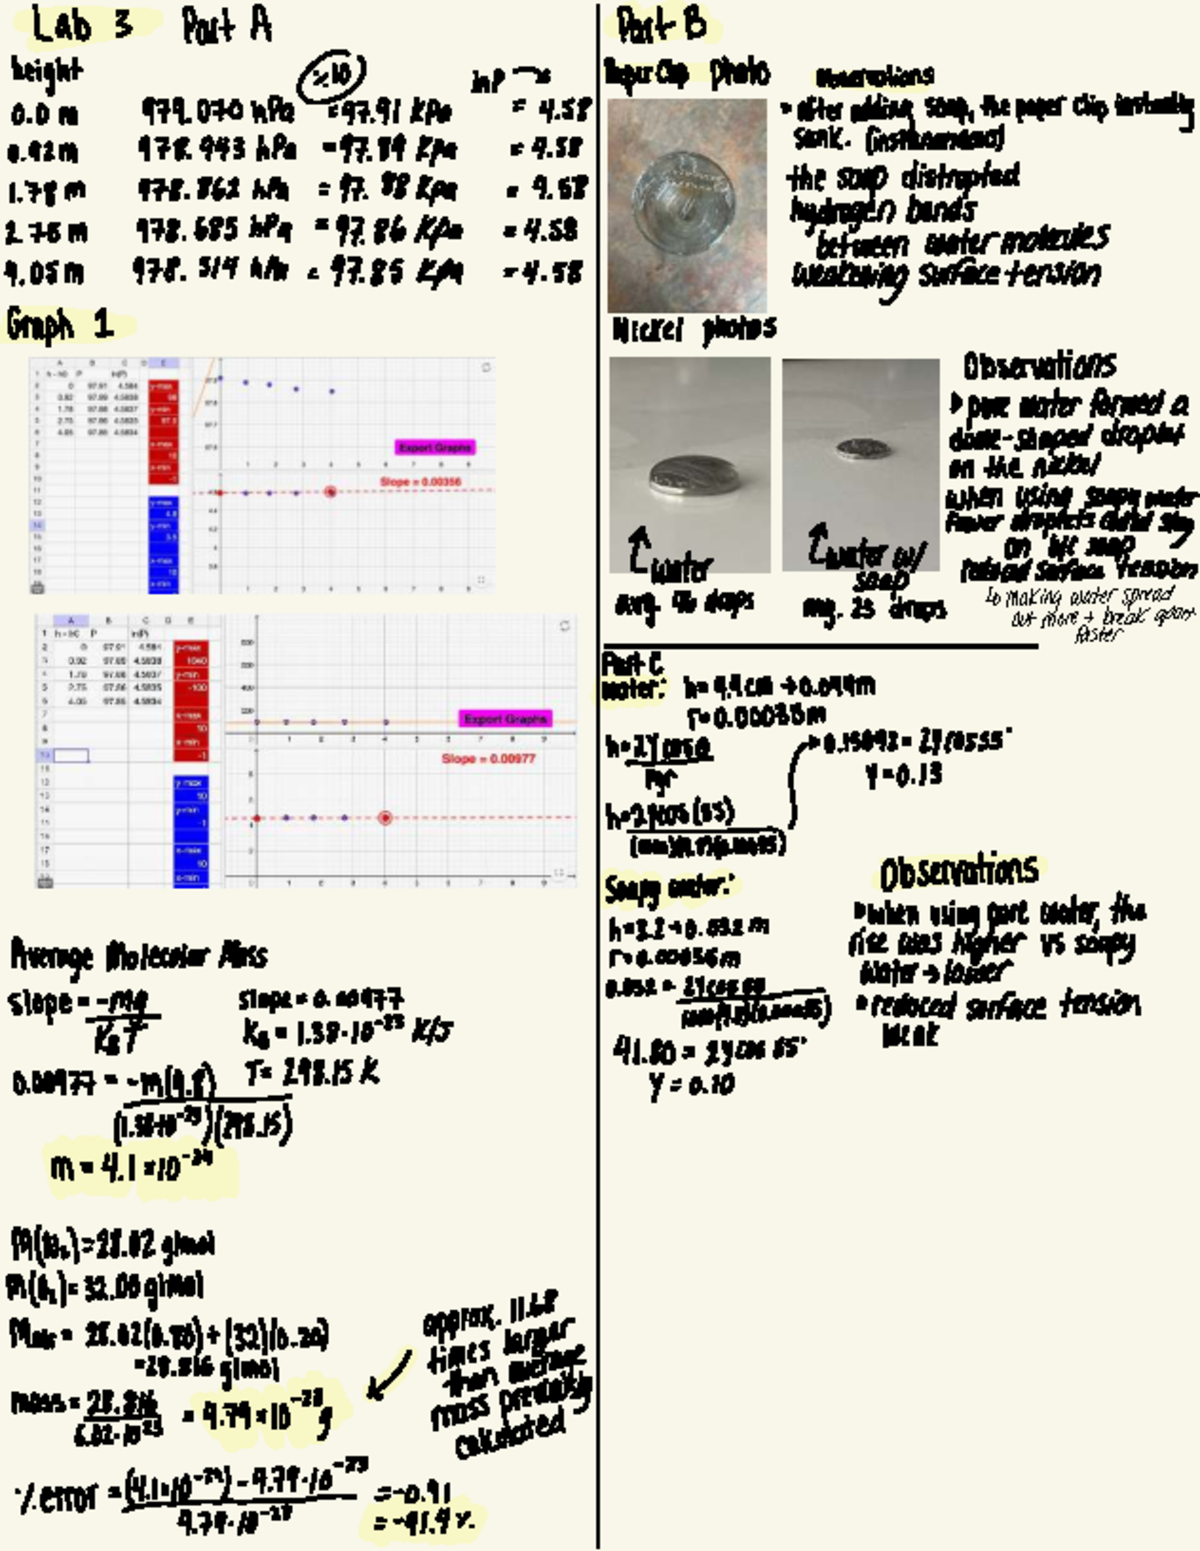 Lab 3 Part A
height
x10
lnP
0.0 m 979.070 hPa = 97.91 KPa = 4.58
0.92 m 978.943 hPa = 97.89 Kpa = 4.58
1.78 m 978.862 hPa = 97.88 Kpa = 4.58
2.75 m 978.685 hPa = 97.86 KPa = 4.58
4.05 m 978.514 hPa = 97.85 KPa = 4.58
Graph 1
h - h0 P ln(P)
0 97.91 4.584
0.92 97.89 4.5838
1.78 97.88 4.5837
2.75 97.86 4.5835
4.05 97.85 4.5834
Export Graphs
Slope = 0.00356
h - h0 P ln(P)
0 97.91 4.584
0.92 97.89 4.5838
1.78 97.88 4.5837
2.75 97.86 4.5835
4.05 97.85 4.5834
Export Graphs
Slope = 0.00977
Average Molecular Mass
slope = -mg / KBT
slope = 0.00977
KB = 1.38·10^-23 K/J
T = 298.15 K
0.00977 = -m(9.8) / (1.38·10^-23)(298.15)
m = 4.1 × 10^-24
M(N2) = 28.02 g/mol
= 32.00 g/mol
= 28.02(0.80) + (32)(0.20)
= 28.816 g/mol
mass = 28.816 / 6.02·10^23 = 4.79 × 10^-23 g
approx. 11.68
times larger
than average
mass previously
calculated
% error = (4.1·10^-24) - 4.79·10^-23 / 4.79·10^-23 = -0.91
= -91.4 %
Part B
Paper Clip photo
Observations
after adding soap, the paper clip instantly
sank. (instantaneous)
the soap distrupted
hydrogen bonds
between water molecules
weakening surface tension
Nickel photos
Observations
pure water formed a
dome-shaped droplet
on the nickel
when using soapy water
fewer droplets could stay
on b/c soap
reduced surface tension
making water spread
out more + break apart
faster
water
avg. drops
water w/
soap
avg. 23 drops
Part C
Water: h = 4.4 cm → 0.044 m
h = 2γcosθ / ρgr
γ = 0.13
Soapy water:
h = 3.2 → 0.032 m
41.80 = 2γcos 85°
γ = 0.10
Observations
when using pure water, the
rise was higher vs soapy
water → lower
reduced surface tension